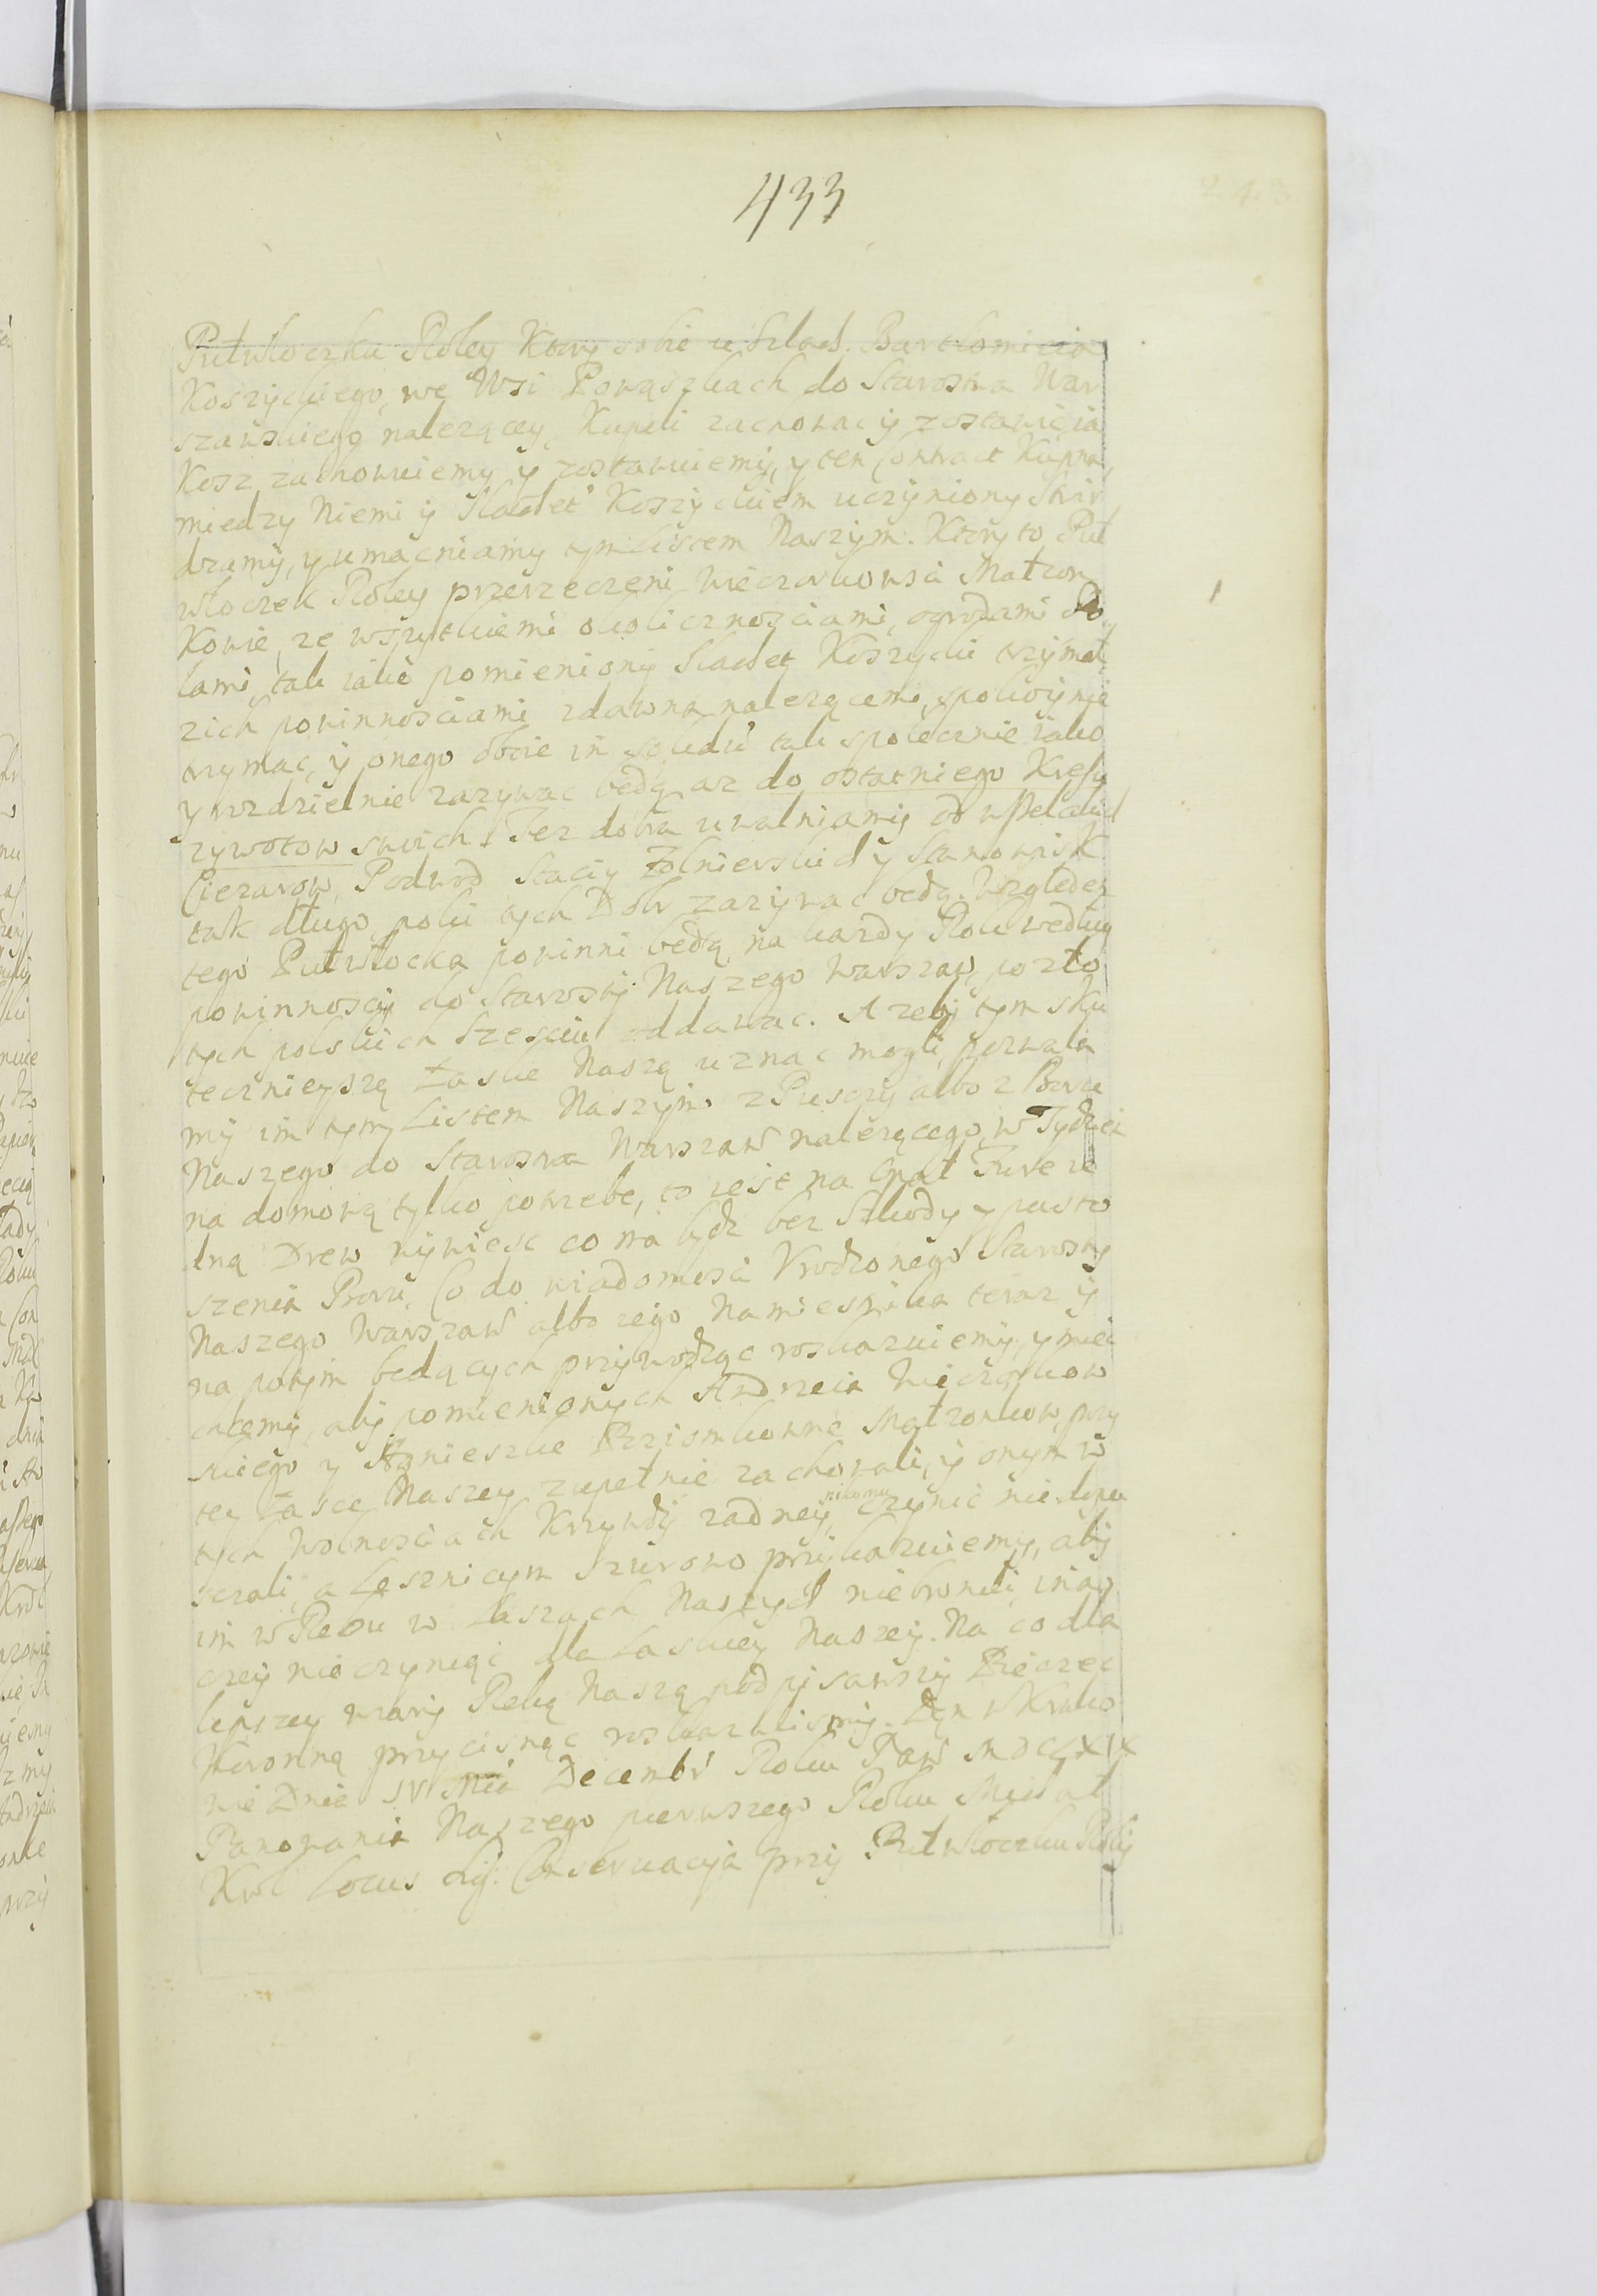 433
243
Putwłoczku Roley Ktory sobie u Szlach. Bartłomieia
Koszyckiego, we Wsi Powązkach do Starostwa War
szawskiego nalezącey, Kupili zachowac y zostawic ia
Kosz zachowuiemy y zostawuiemy, y ten Contract Kupna,
miedzy Niemi y Slachet Koszyckiem uczyniony stwir
dzamy, y umacniamy tym Listem Naszym. Ktory to Put
włoczek Roley przerzeczeni Wieczorkowsci Małzon
Kowie, ze wszytkiemi okolicznosciami, ogrodami Ro
lami, tak iako pomieniony Slachet Koszycki trzymał,
zich powinnosciami zdawna nalezącemi, spokoynie
trzymac, y onego oboie in solidu tak społecznie iako
y wzdzielnie zazywac będą, az do ostatniego Kresu
zywotow swoich. Tez dobra uwalniamy od wszelakich
Cięzarow, Podwod Staciy Zołnierskich y Stanowisk
tak długo poki tych Dobr zazywac będą. Względem
tego Putwłocka powinni będą na kazdy Rok według
powinnosciy do Starosty Naszego Warszaw, po zło
tych polskich Szesciu oddawac. A zeby tym sku
tecznieyszą Łaske Naszą uznac mogli, pozwala
my im tym Listem Naszym z Puszczy albo z Boru
Naszego do Starostwa Warszaw nalezącego, w Tydzien
na domową tylko potrzebe, to iest na Opał Fure ie
dną Drew wywiesc co ma bydz bez Szkody y pusto
szenia Boru, Co do wiadomosci Vrodzonego Starosty
Naszego Warszaw albo iego Namiesnika teraz y
na potym będących przywodząc roskazuiemy, y miec
chcemy, aby pomienionych Andrzeia Wieczorkow
skiego y Agnieszke Małzonkow, przy
tey Łasce Naszey zupełnie zachowali, y onym w
tych Wolnosciach Krzywdy zadney nikomu czynic niedopu
sczali, a Lesniczym Szurowo przykazuiemy, aby
im w Rebu w Lasach Naszych niebronili, inac
zey nie czyniąc dla Łaskey Naszey. Na co dla
lepszey wiary Reką Naszą podpisawszy Pieczęc
Koronną przycisnąc roskazalismy. Dan w Krako
wie Dnia IV Mca Decembr Roku Pans MDCXLIX
Panowania Naszego pierwszego Roku Michał
Krol Locus Sig: Conservacya przy Putwłoczku Roly